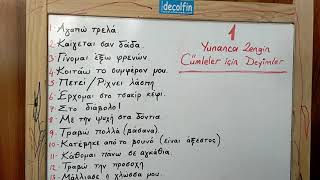 decolfin
1
Yunanca Zengin
Cümleler için Deyimler
1. Αγαπώ τρελά
2. Καίγεται σαν δάδα.
3. Γίνομαι έξω φρενών.
4. Κοιτάω το συμφέρον μου.
5. Πετεί / Ρίχνει λάσπη
6. Έρχομαι στο τσακίρ κέφι.
7. Στο διάβολο!
8. Με την ψυχή στα δόντια
9. Τραβώ πολλά (βάσανα).
10. Κατέβηκε από το βουνό (είναι άξεστος)
11. Κάθομαι πάνω σε αγκάθια.
12. Τραβώ την προσοχή
13. Μάλλιασε η γλώσσα μου.